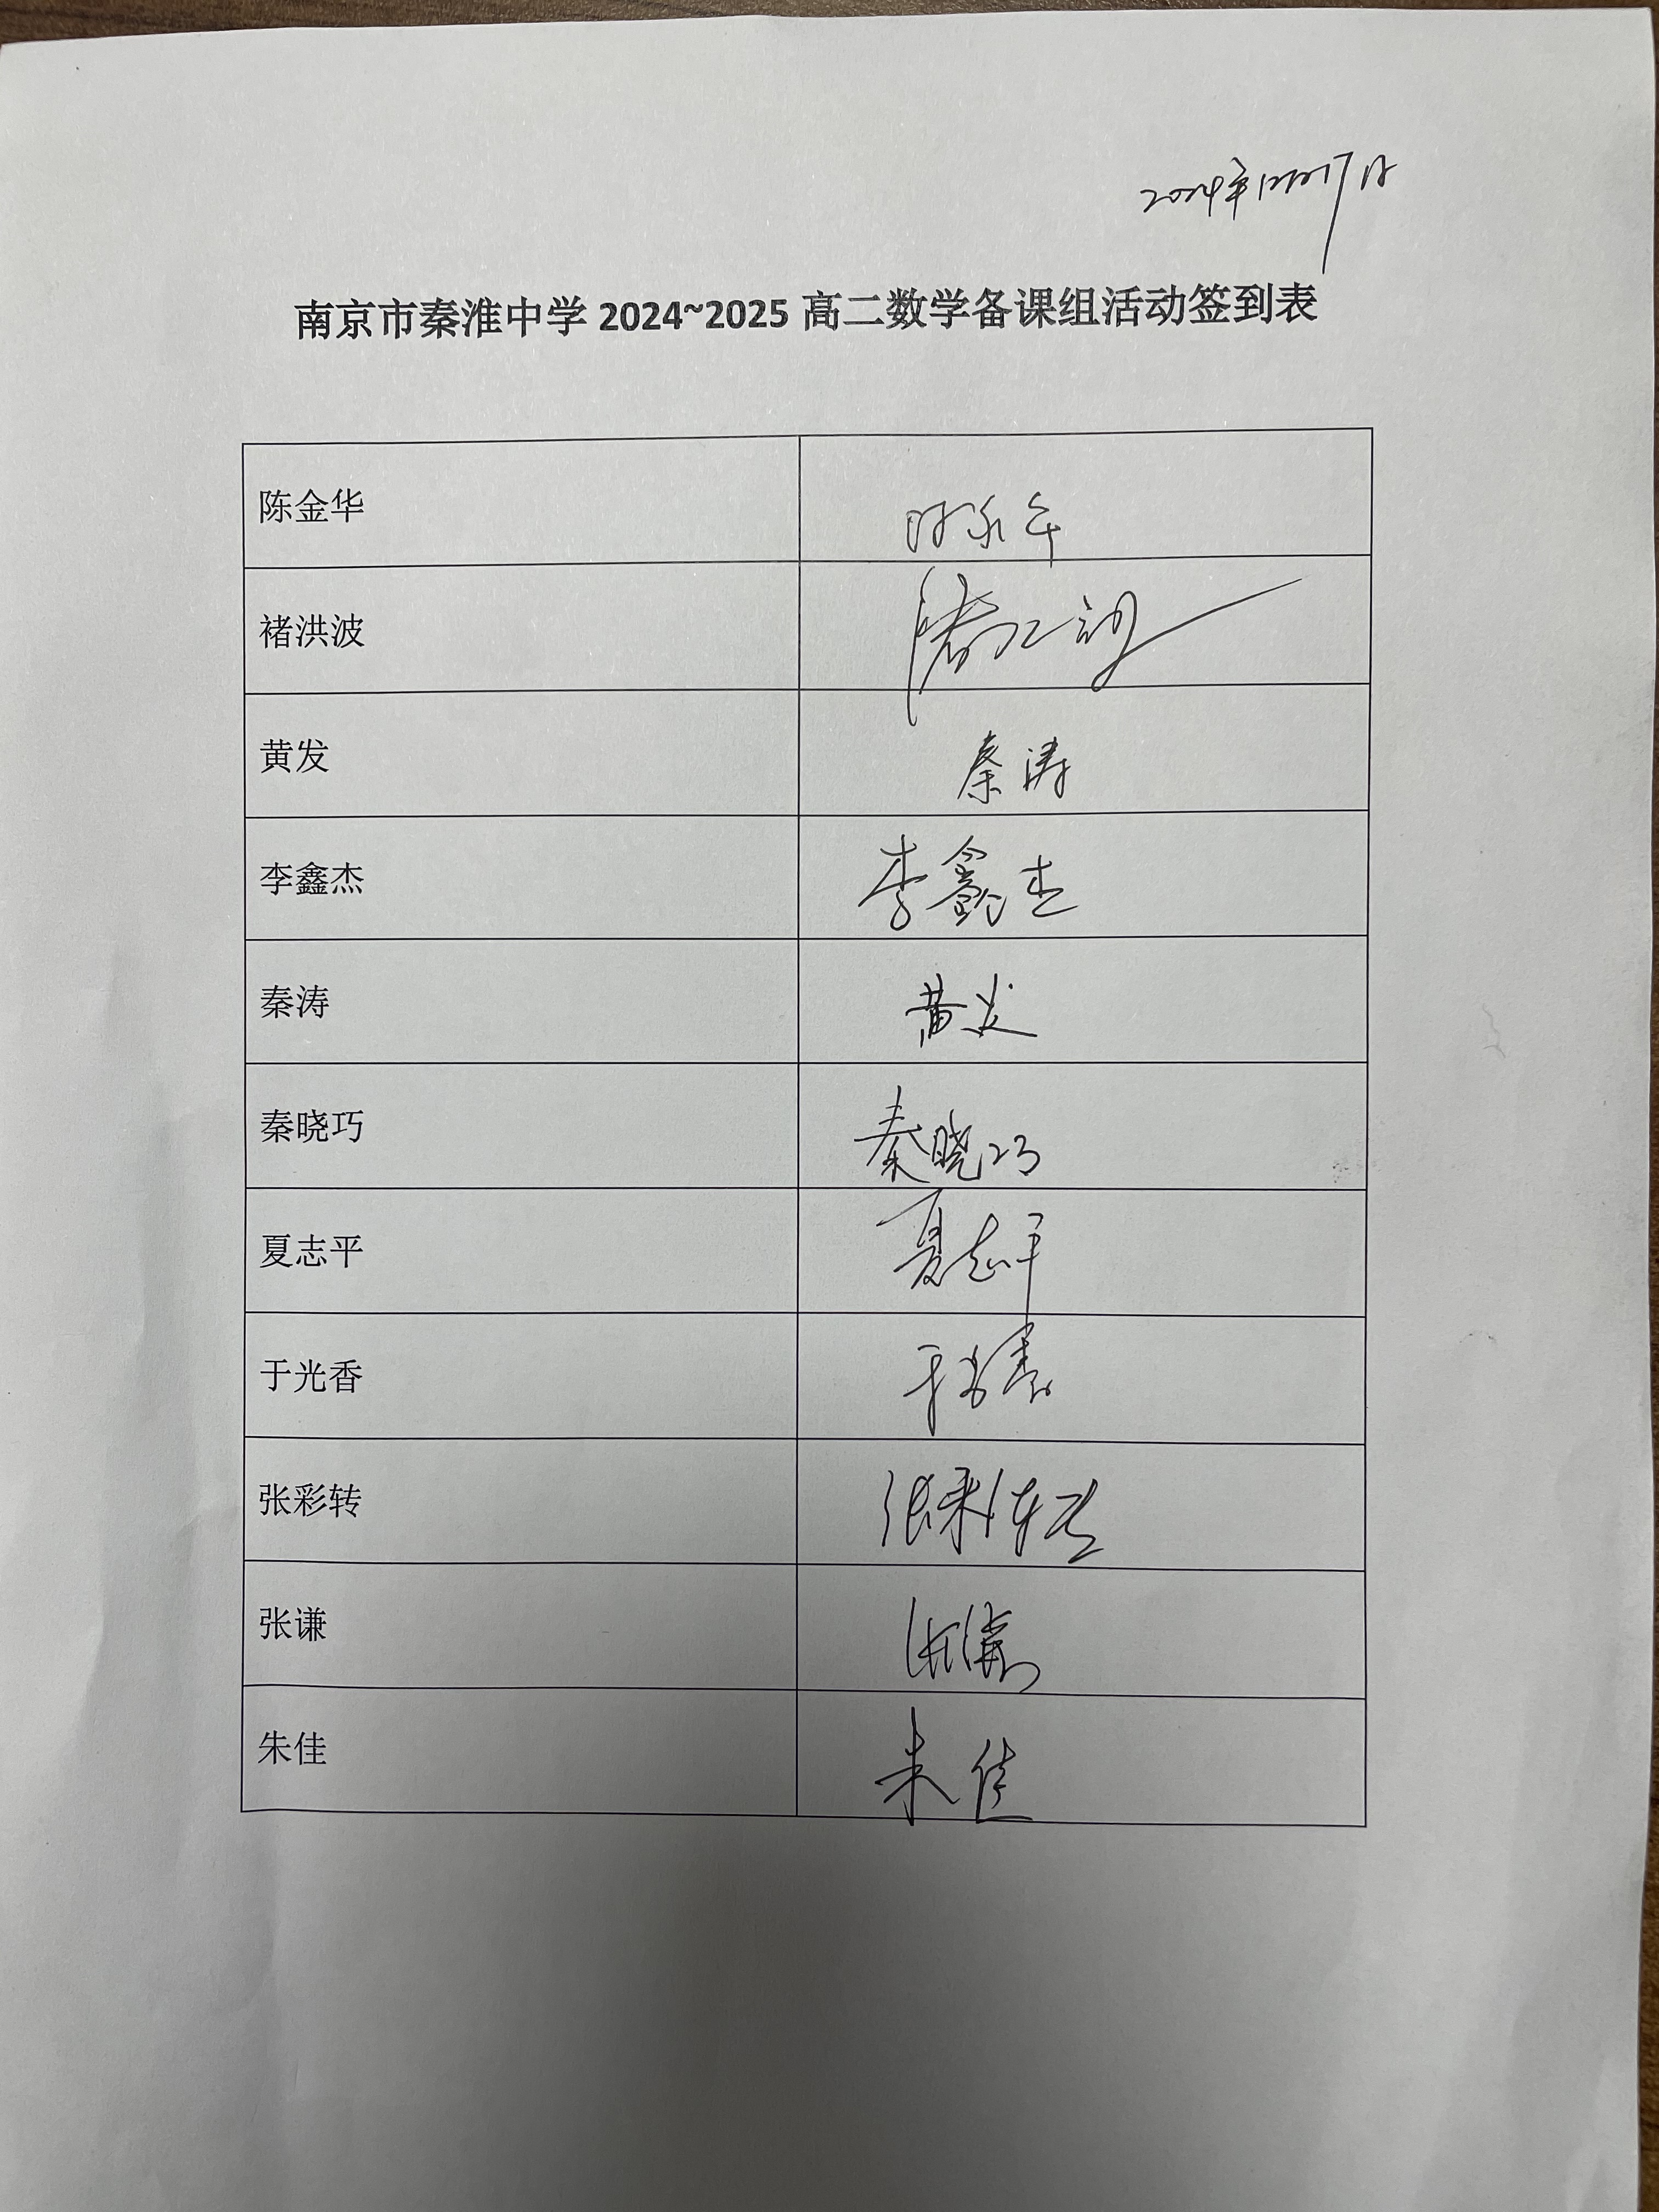 2024年12月17日
南京市秦淮中学 2024~2025 高二数学备课组活动签到表
陈金华 陈金华
褚洪波 褚洪波
黄发 秦涛
李鑫杰 李鑫杰
秦涛 黄发
秦晓巧 秦晓巧
夏志平 夏志平
于光香 于光香
张彩转 张彩转
张谦 张谦
朱佳 朱佳